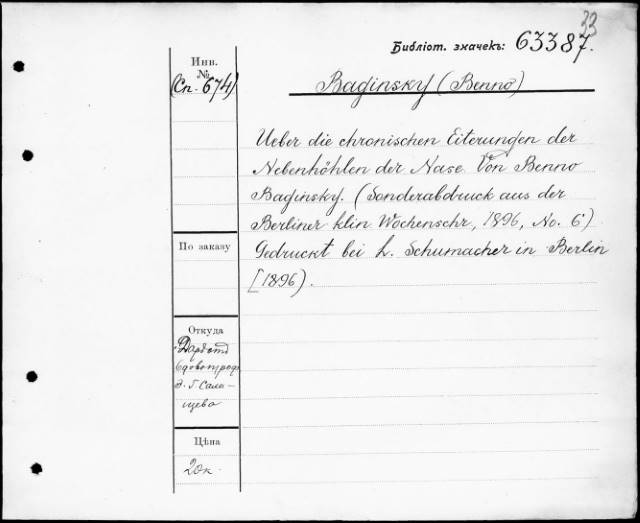 33
Библіот. значекъ: 63387.
Инв.
№
(Сп. 674)
Baginsky (Benno)
Ueber die chronischen Eiterungen der
Nebenhöhlen der Nase. Von Benno
Baginsky. (Sonderabdruck aus der
Berliner klin. Wochenschr., 1896, No. 6)
Gedruckt bei L. Schumacher in Berlin
[1896).
По заказу
Откуда
Э. Г. Сали-
щева
Цѣна
20к.